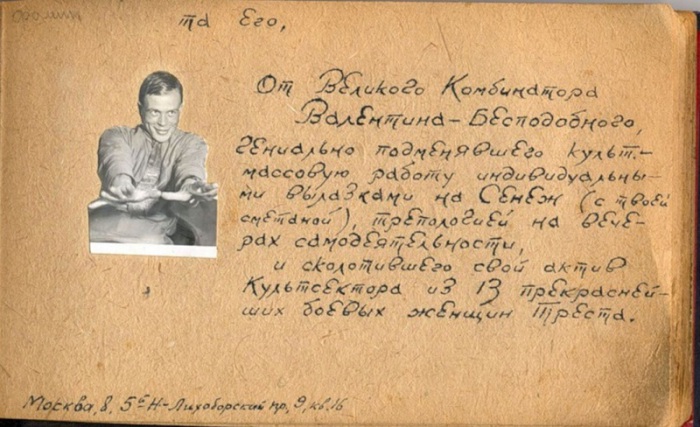 та Его,
От Великого Комбинатора
Валентина-Бесподобного,
гениально подменявшего культ.-
массовую работу индивидуальны-
ми вылазками на Сенеж (с твоей
сметаной), трепологией на вече-
рах самодеятельности,
и сколотившего свой актив
Культсектора из 13 прекрасней-
ших боевых женщин Треста.
Москва, 8, 5й Н-Лихоборский пр, 9, кв. 16